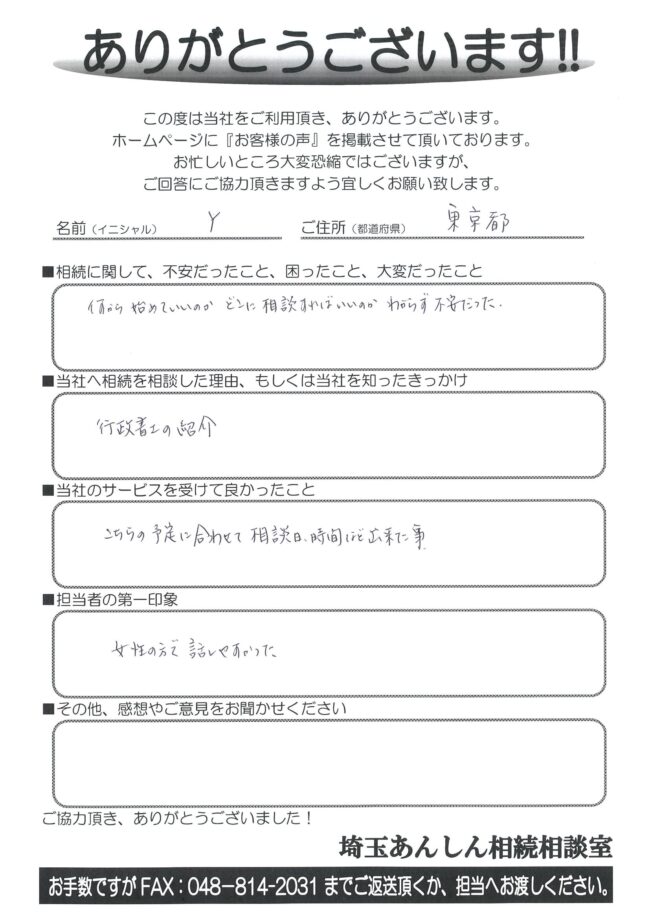 ありがとうございます!!
この度は当社をご利用頂き、ありがとうございます。
ホームページに『お客様の声』を掲載させて頂いております。
お忙しいところ大変恐縮ではございますが、
ご回答にご協力頂きますよう宜しくお願い致します。
名前（イニシャル） Y ご住所（都道府県） 東京都
■相続に関して、不安だったこと、困ったこと、大変だったこと
何から始めていいのか どこに相談すればいいのか わからず不安だった.
■当社へ相続を相談した理由、もしくは当社を知ったきっかけ
行政書士の紹介
■当社のサービスを受けて良かったこと
こちらの予定に合わせて相談日、時間など出来た事
■担当者の第一印象
女性の方で話しやすかった、
■その他、感想やご意見をお聞かせください
ご協力頂き、ありがとうございました！
埼玉あんしん相続相談室
お手数ですがFAX：048−814−2031までご返送頂くか、担当へお渡しください。